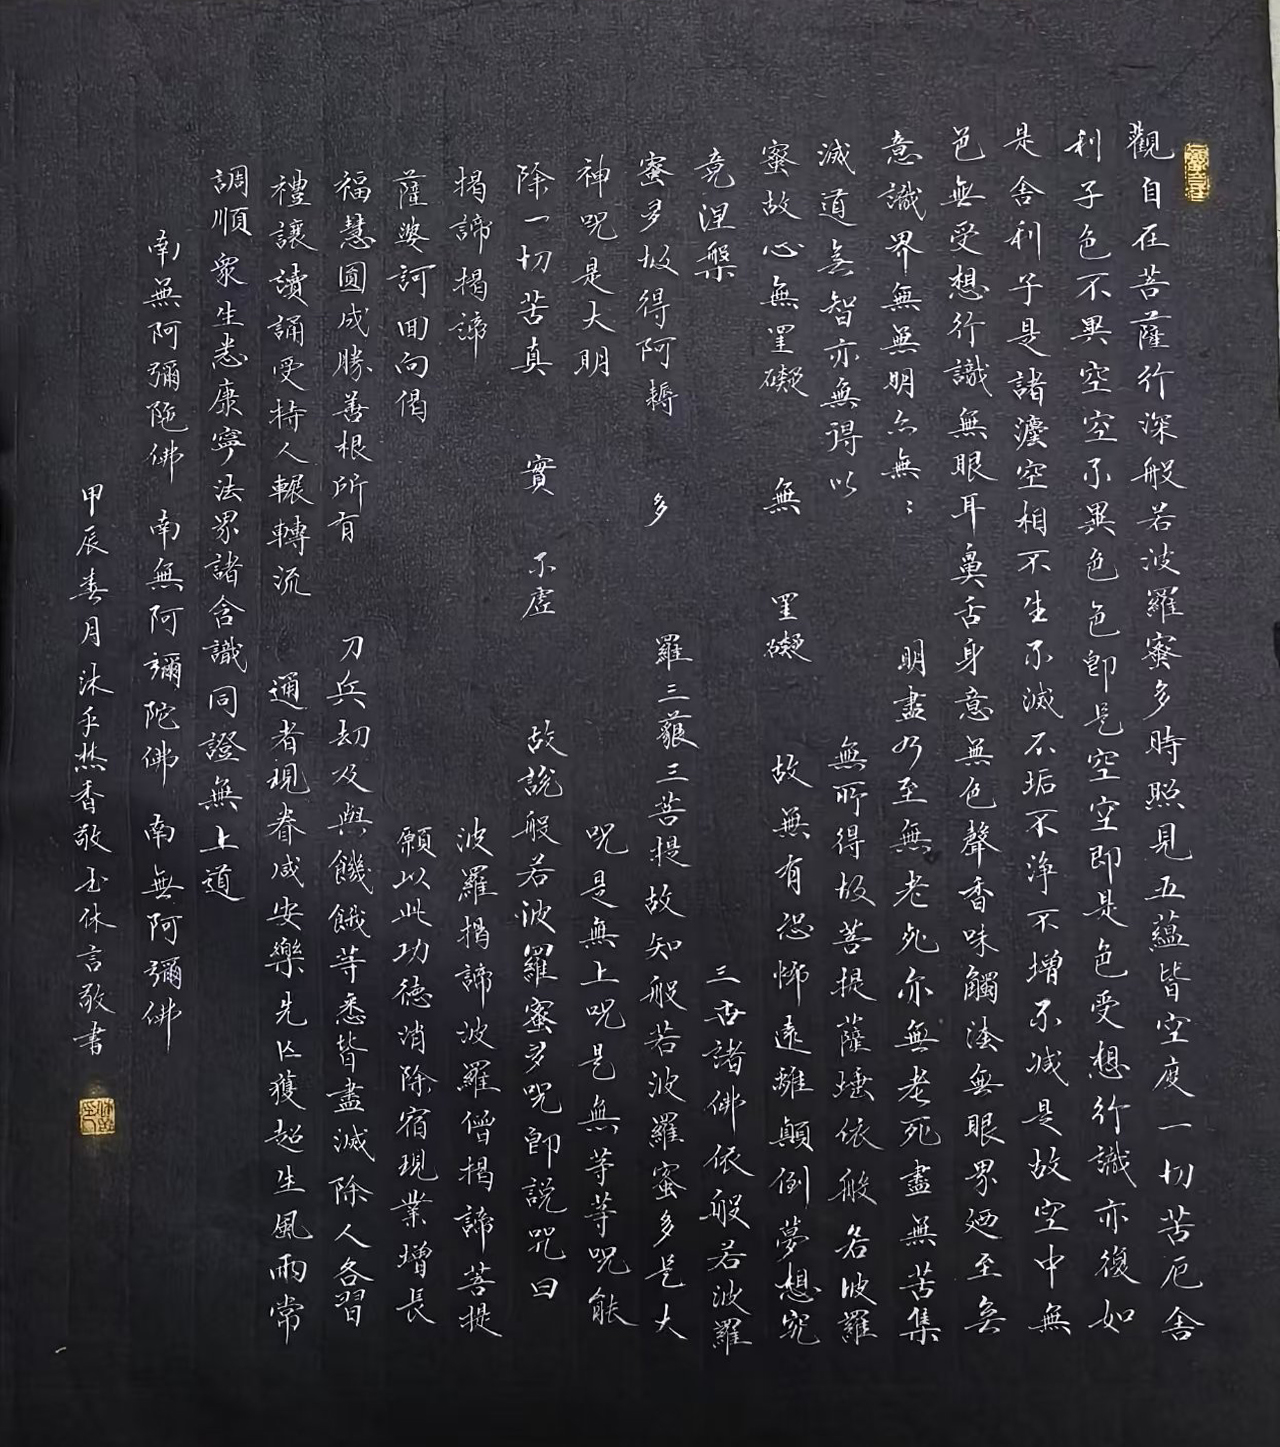 觀自在菩薩行深般若波羅蜜多時照見五蘊皆空度一切苦厄舍
利子色不異空空不異色色即是空空即是色受想行識亦復如
是舍利子是諸法空相不生不滅不垢不淨不增不減是故空中無
色無受想行識無眼耳鼻舌身意無色聲香味觸法無眼界廼至無
意識界無無明亦無〻明盡乃至無老死亦無老死盡無苦集
滅道無智亦無得以無所得故菩提薩埵依般若波羅
蜜故心無罣礙無罣礙故無有恐怖遠離顛倒夢想究
竟涅槃三世諸佛依般若波羅
蜜多故得阿耨多羅三藐三菩提故知般若波羅蜜多是大
神咒是大明咒是無上咒是無等等咒能
除一切苦真實不虛故說般若波羅蜜多咒即說咒曰
揭諦揭諦波羅揭諦波羅僧揭諦菩提
薩婆訶回向偈願以此功德消除宿現業增長
福慧圓成勝善根所有刀兵劫及與饑餓等悉皆盡滅除人各習
禮讓讀誦受持人輾轉流通者現眷咸安樂先亡獲超生風雨常
調順眾生悉康寧法界諸含識同證無上道
南無阿彌陀佛 南無阿彌陀佛 南無阿彌佛
甲辰春月沐手焚香敬書休言敬書